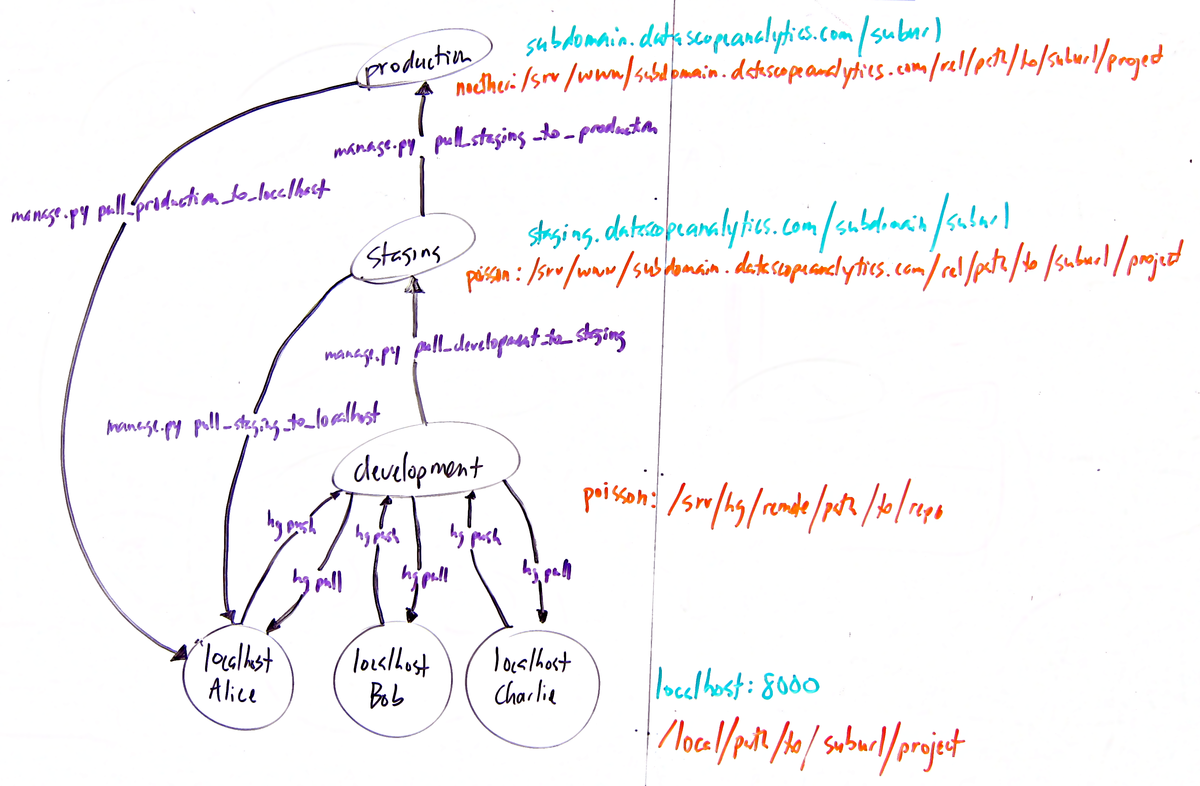 subdomain.datascopeanalytics.com/suburl
production
noether:/srv/www/subdomain.datascopeanalytics.com/rel/path/to/suburl/project
manage.py pull_staging_to_production
manage.py pull_production_to_localhost
staging.datascopeanalytics.com/subdomain/suburl
staging
poisson:/srv/www/subdomain.datascopeanalytics.com/rel/path/to/suburl/project
manage.py pull_development_to_staging
manage.py pull_staging_to_localhost
development
poisson: /srv/hg/remote/path/to/repo
hg push
hg push
hg push
hg pull
hg pull
hg pull
localhost
Alice
localhost
Bob
localhost
Charlie
localhost:8000
/local/path/to/suburl/project